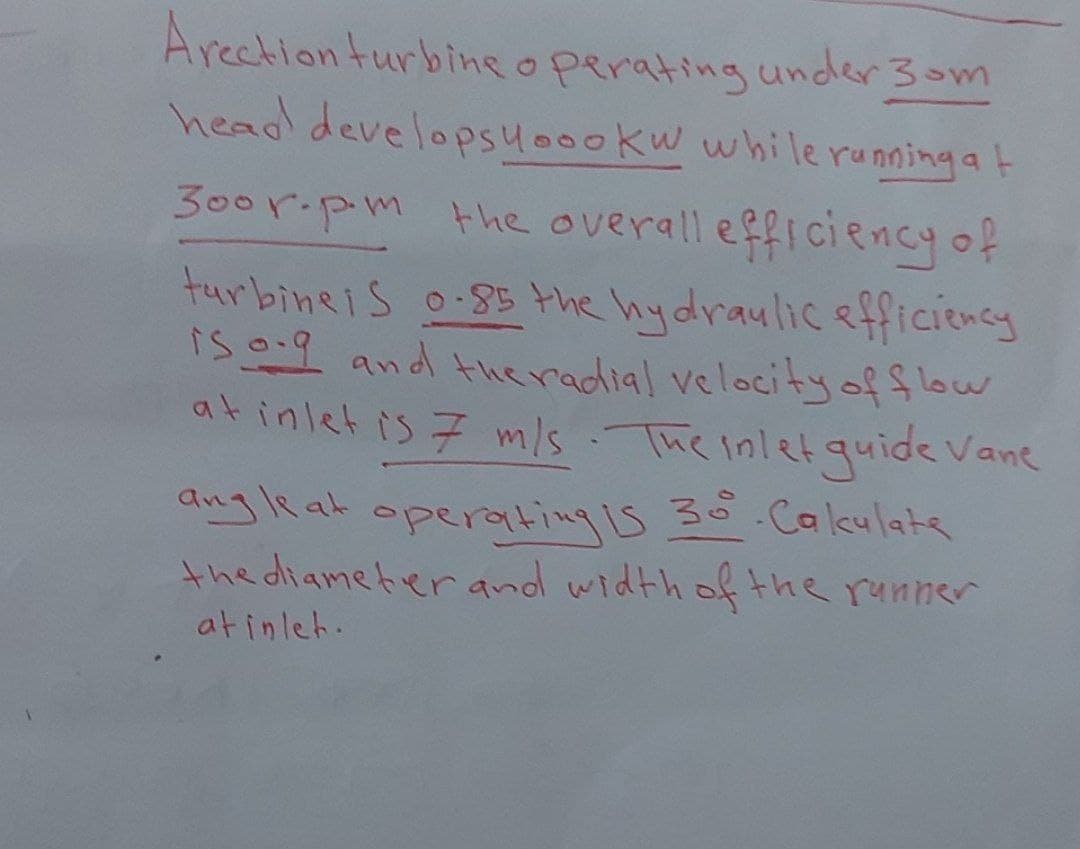 A rection turbine operating under 30m
head develops 4000 kw while running at
300 r.p.m the overall efficiency of
turbine is 0.85 the hydraulic efficiency
is 0.9 and the radial velocity of flow
at inlet is 7 m/s. The inlet guide vane
angle at operating is 30°. Calculate
the diameter and width of the runner
at inlet.